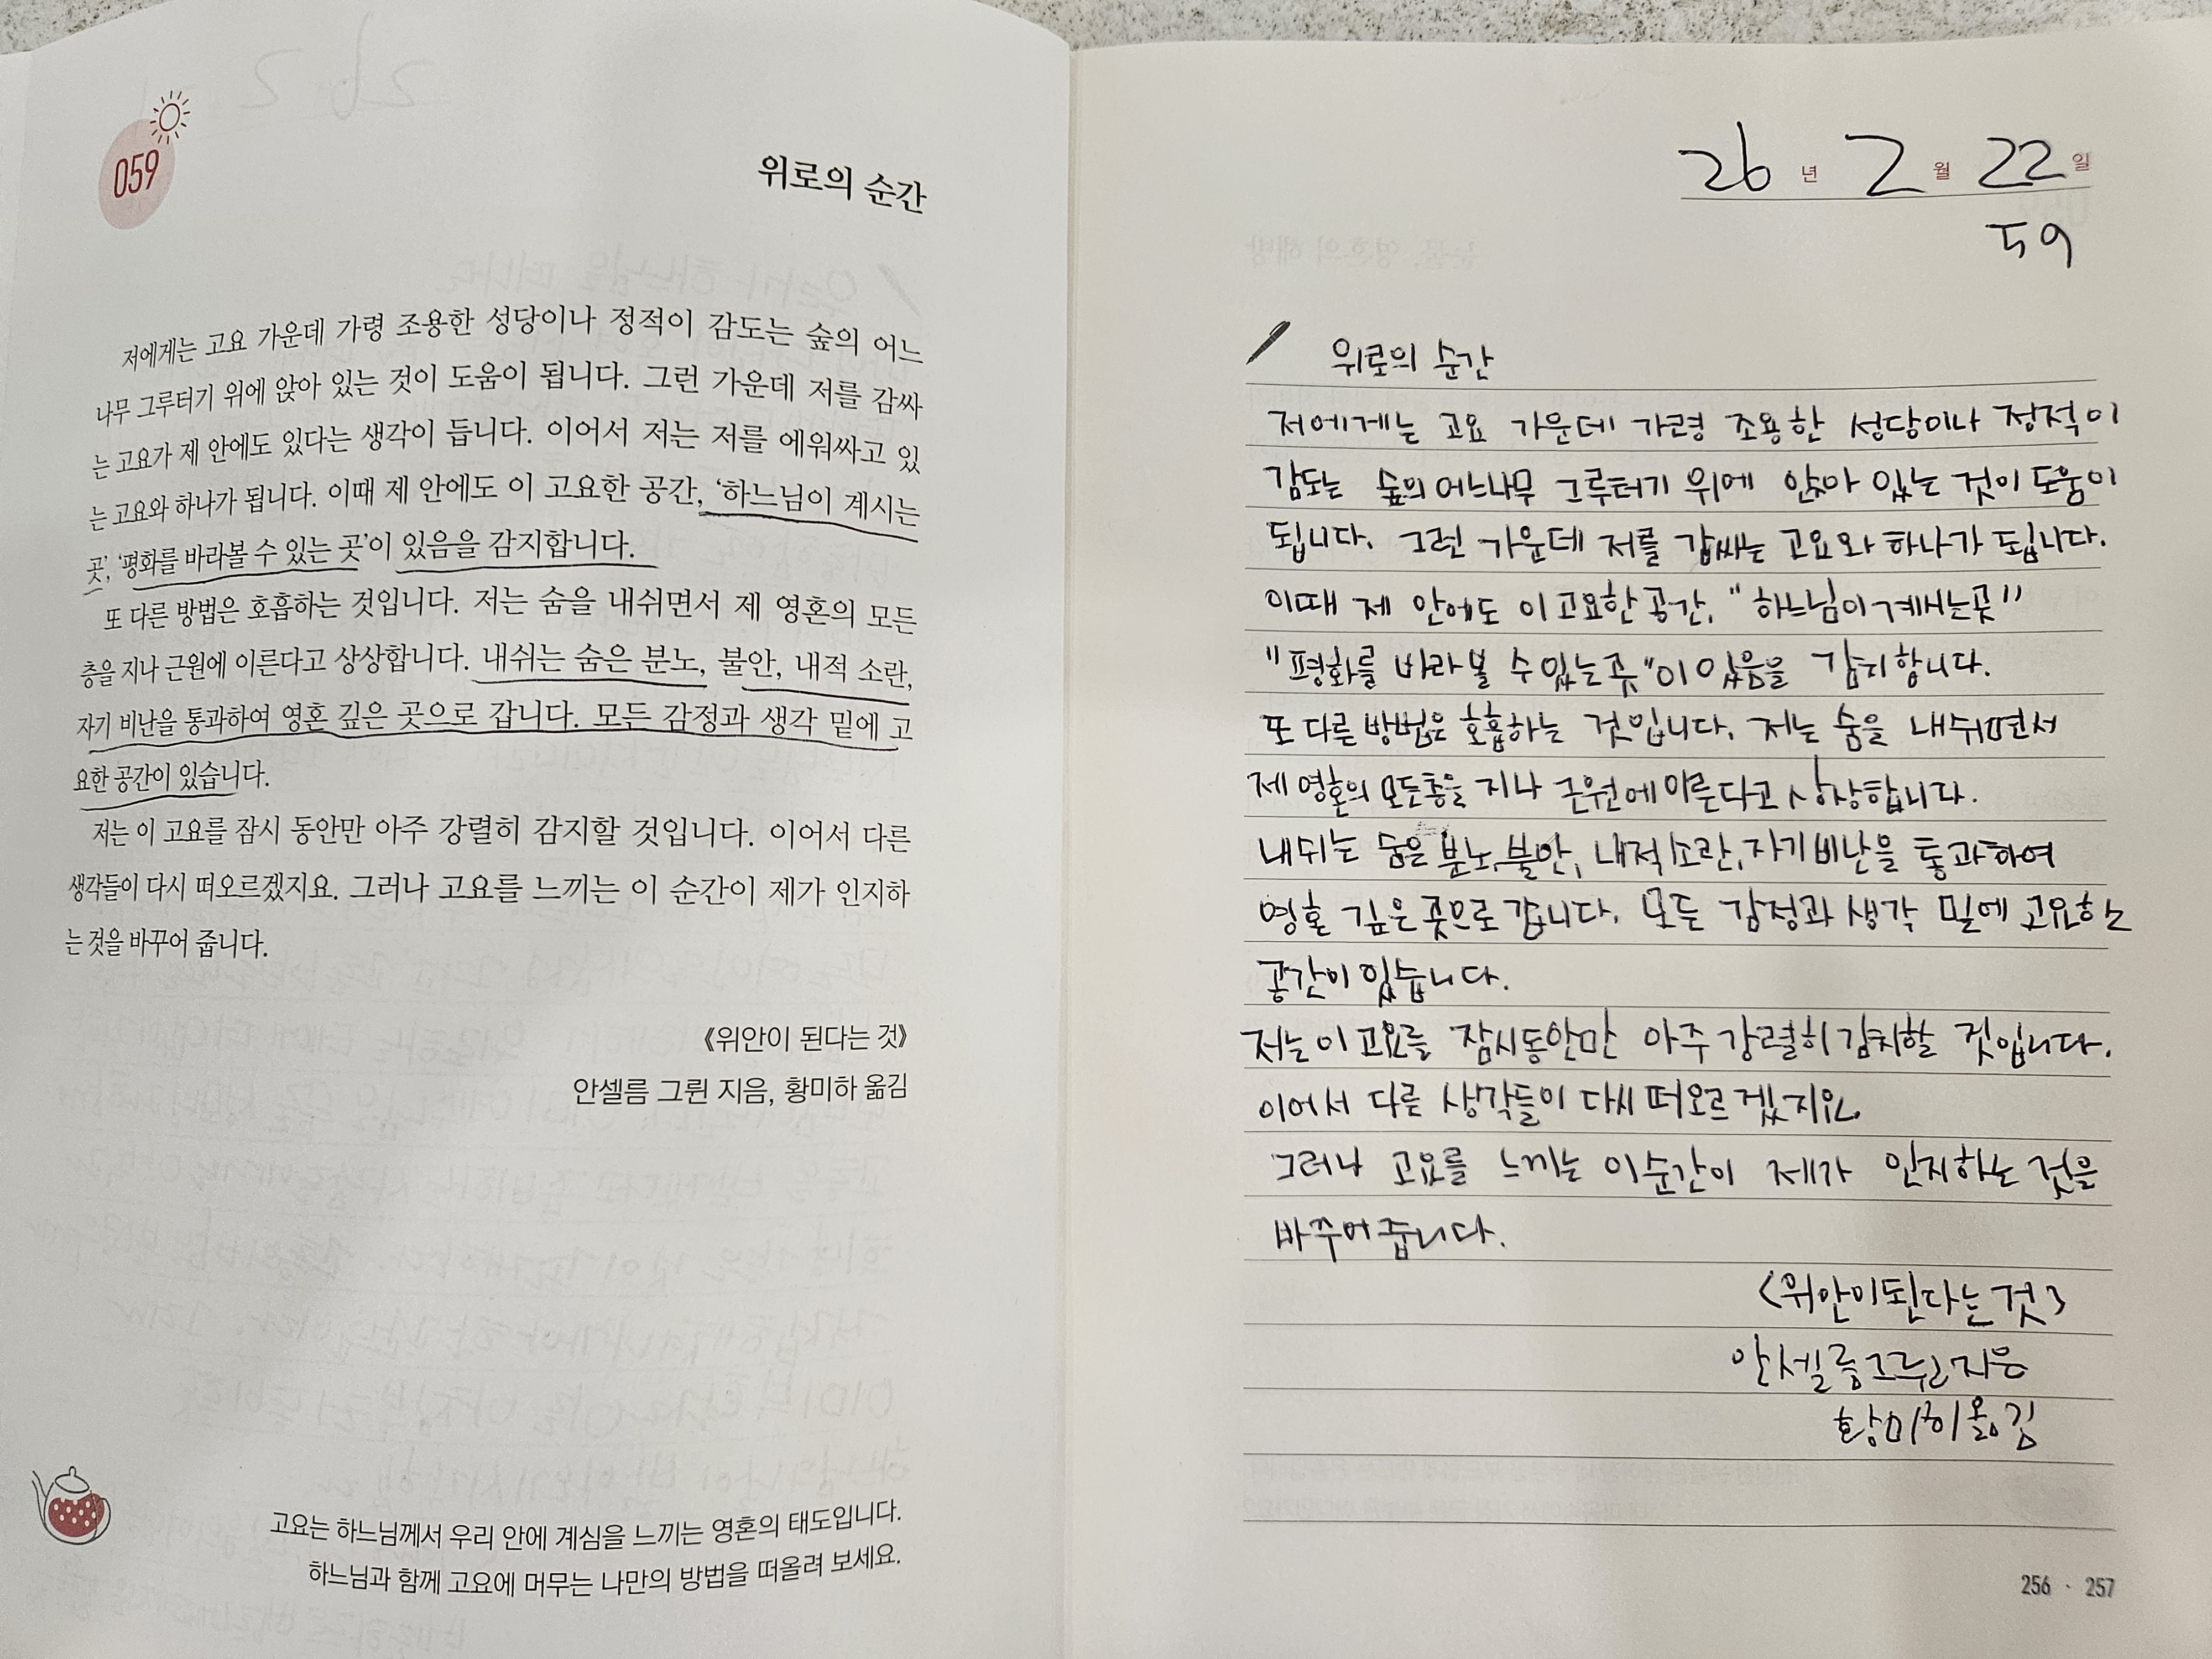 059
위로의 순간
저에게는 고요 가운데 가령 조용한 성당이나 정적이 감도는 숲의 어느
나무 그루터기 위에 앉아 있는 것이 도움이 됩니다. 그런 가운데 저를 감싸
는 고요가 제 안에도 있다는 생각이 듭니다. 이어서 저는 저를 에워싸고 있
는 고요와 하나가 됩니다. 이때 제 안에도 이 고요한 공간, ‘하느님이 계시는
곳’, ‘평화를 바라볼 수 있는 곳’이 있음을 감지합니다.
또 다른 방법은 호흡하는 것입니다. 저는 숨을 내쉬면서 제 영혼의 모든
층을 지나 근원에 이른다고 상상합니다. 내쉬는 숨은 분노, 불안, 내적 소란,
자기 비난을 통과하여 영혼 깊은 곳으로 갑니다. 모든 감정과 생각 밑에 고
요한 공간이 있습니다.
저는 이 고요를 잠시 동안만 아주 강렬히 감지할 것입니다. 이어서 다른
생각들이 다시 떠오르겠지요. 그러나 고요를 느끼는 이 순간이 제가 인지하
는 것을 바꾸어 줍니다.
《위안이 된다는 것》
안셀름 그륀 지음, 황미하 옮김
고요는 하느님께서 우리 안에 계심을 느끼는 영혼의 태도입니다.
하느님과 함께 고요에 머무는 나만의 방법을 떠올려 보세요.
26 년 2 월 22 일
59
위로의 순간
저에게는 고요 가운데 가령 조용한 성당이나 정적이
감도는 숲의 어느나무 그루터기 위에 앉아 있는 것이 도움이
됩니다. 그런 가운데 저를 감싸는 고요와 하나가 됩니다.
이때 제 안에도 이 고요한 공간, "하느님이 계시는곳"
"평화를 바라볼 수 있는곳"이 있음을 감지합니다.
또 다른 방법은 호흡하는 것입니다. 저는 숨을 내쉬면서
제 영혼의 모든층을 지나 근원에 이른다고 상상합니다.
내쉬는 숨은 분노, 불안, 내적소란, 자기비난을 통과하여
영혼 깊은 곳으로 갑니다. 모든 감정과 생각 밑에 고요한
공간이 있습니다.
저는 이 고요를 잠시동안만 아주 강렬히 감지할 것입니다.
이어서 다른 생각들이 다시 떠오르겠지요.
그러나 고요를 느끼는 이순간이 제가 인지하는 것을
바꾸어 줍니다.
<위안이 된다는 것>
안셀름그륀 지음
황미하 옮김
256 · 257